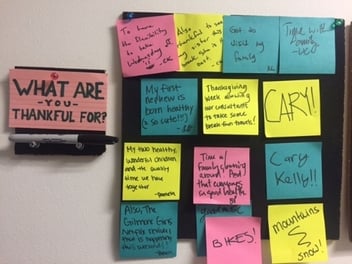 WHAT ARE
-YOU-
THANKFUL FOR?
To have
the flexibility
to take
Wednesday
Also
thankful to see
my sister this
Got to
visit my
family
Time with
family
My first
nephew is
born healthy
(+ so cute!!!)
Thanksgiving
Week allowing
our consultants
to take some
break from travel!
CARY!
My two healthy,
wonderful children
and the quality
time we have
together
Time w/
Family coming
around! And
that everyone
in good health
Cary
Kelly!!
Also, The
Gilmore Girls
Netflix revival
that is happening
this
BIKES!
mountains
&
snow!